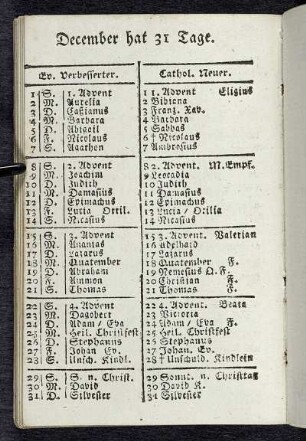 December hat 31 Tage.
Ev. Verbesserter. Cathol. Neuer.
1 S. 1. Advent 1 1. Advent Eligius
2 M. Aurelia 2 Bibiana
3 D. Cassianus 3 Franz. Xav.
4 M. Barbara 4 Barbara
5 D. Abigail 5 Sabbas
6 F. Nicolaus 6 † Nicolaus
7 S. Agathon 7 Ambrosius
8 S. 2. Advent 8 2. Advent M. Empf.
9 M. Joachim 9 Leocadia
10 D. Judith 10 Judith
11 M. Damasius 11 Damasius
12 D. Epimachus 12 Epimachus
13 F. Lucia Ottil. 13 Lucia / Otilia
14 S. Nicasius 14 Nicasius
15 S. 3. Advent 15 3. Advent Valerian
16 M. Ananias 16 Adelhard
17 D. Lazarus 17 Lazarus
18 M. Quatember 18 Quatember F.
19 D. Abraham 19 Nemesius Q. F.
20 F. Ammon 20 Christian F.
21 S. Thomas 21 Thomas F.
22 S. 4. Advent 22 4. Advent Beata
23 M. Dagobert 23 Victoria
24 D. Adam / Eva 24 Adam / Eva F.
25 M. Heil. Christfest 25 Heil. Christfest
26 D. Stephanus 26 Stephanus
27 F. Johan Ev. 27 Johan. Ev.
28 S. Unsch. Kindl. 28 † Unschuld. Kindlein
29 S. S. n. Christ. 29 Sonnt. n. Christtag
30 M. David 30 David K.
31 D. Silvester 31 Silvester